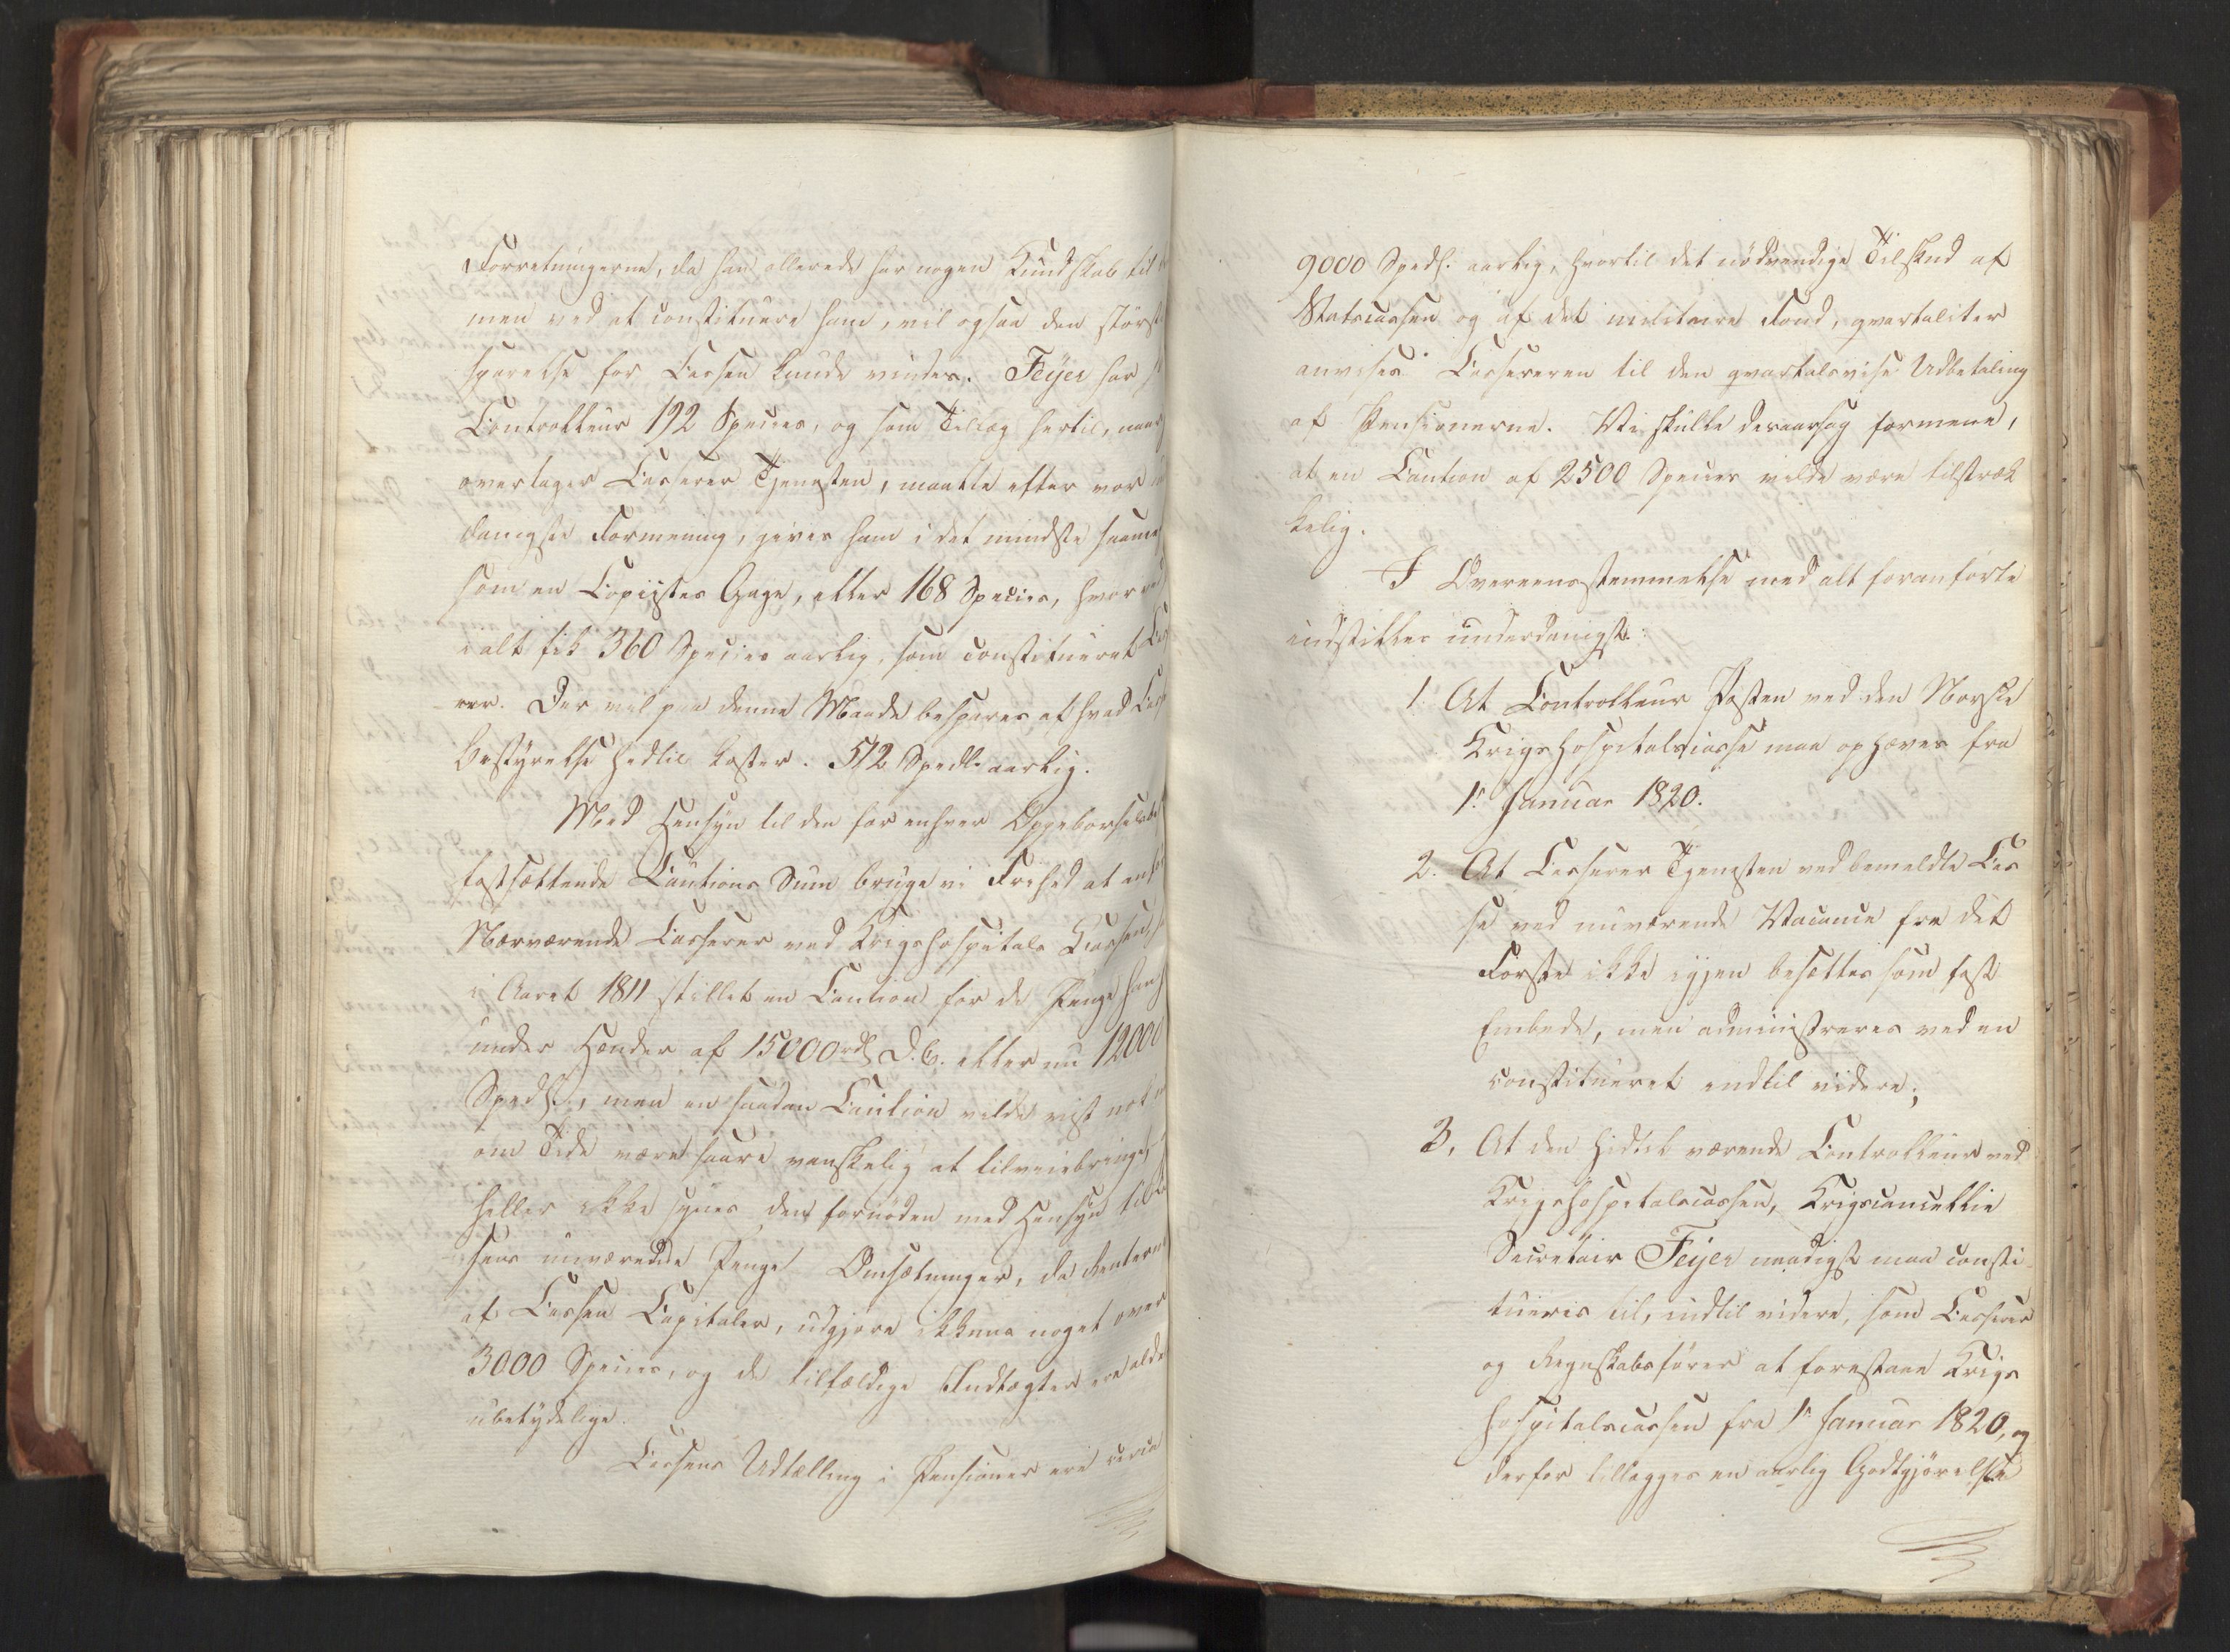 Forretningerne, da han allerede har nogen Kundskab til
men ved at constituere ham, vil ogsaa den störst
sparelse for Cassen kunde vindes. Feyer har
Controlleur 192 Species, og som Tillæg hertil, naar
overtager Casserer Tjenesten, maatte efter vor
danigste Formening, gives ham i det mindste saameget
som en Copiistes Gage, eller 168 Species, hvorved
i alt fik 360 Species aarlig, som constitueret Cas
rer. Der vil paa denne Maade bespares af hvad Cass
bestyrelse hedtil koster. 512 Spedlr aarlig.
Med Hensyn til den for enhver Oppebørselsbe
fastsættende Cautions Sum bruge vi Frihed at anf
Nærværende Casserer ved Krigshospitals Kassen,
i Aaret 1811 stillet en Caution for de Penge han
under Hænder af 15000 rdl D. C. eller nu 12000
Spedlr, men en saadan Caution vilde vist nok
om Tide være saare vanskelig at tilveiebringe,
heller ikke synes den fornöden med Hensyn til
sens nuværende Penge Omsætninger, da Renterne
af Cassen Capitaler, udgjøre ikkuns noget over
3000 Species, og de tilfældige Indtægter ere alde
ubetydelige.
Cassens Udtælling i Pensioner ere circa
9000 Spedlr. aarlig, hvortil det nödvendige Tilskud af
Statscassen og af det militaire Fond, qvartaliter
anvises Cassereren til den qvartalsvise Udbetaling
af Pensionerne. Vi skulle desaarsag formene,
at en Caution af 2500 Species vilde være tilstræk
kelig.
I Overeensstemmelse med alt foranførte
indstilles underdanigst:
1. At Controlleur Posten ved den Norske
Krigshospitalscasse maa ophæves fra
1ste Januar 1820.
2. At Casserer Tjenesten ved bemeldte Cas
se ved nuværende Vacance fra det
Første ikke igjen besættes som fast
Embede, men administreres ved en
constitueret indtil videre;
3. At den hidtil værende Controlleur ved
Krigshospitalscassen, Krigscancellie
Secretair Feyer naadigst maa consti
tueres til, indtil videre, som Casserer
og Regnskabsfører at forestaae Krigs
hospitalscassen fra 1ste Januar 1820, og
derfor tillægges en aarlig Godtgjörelse